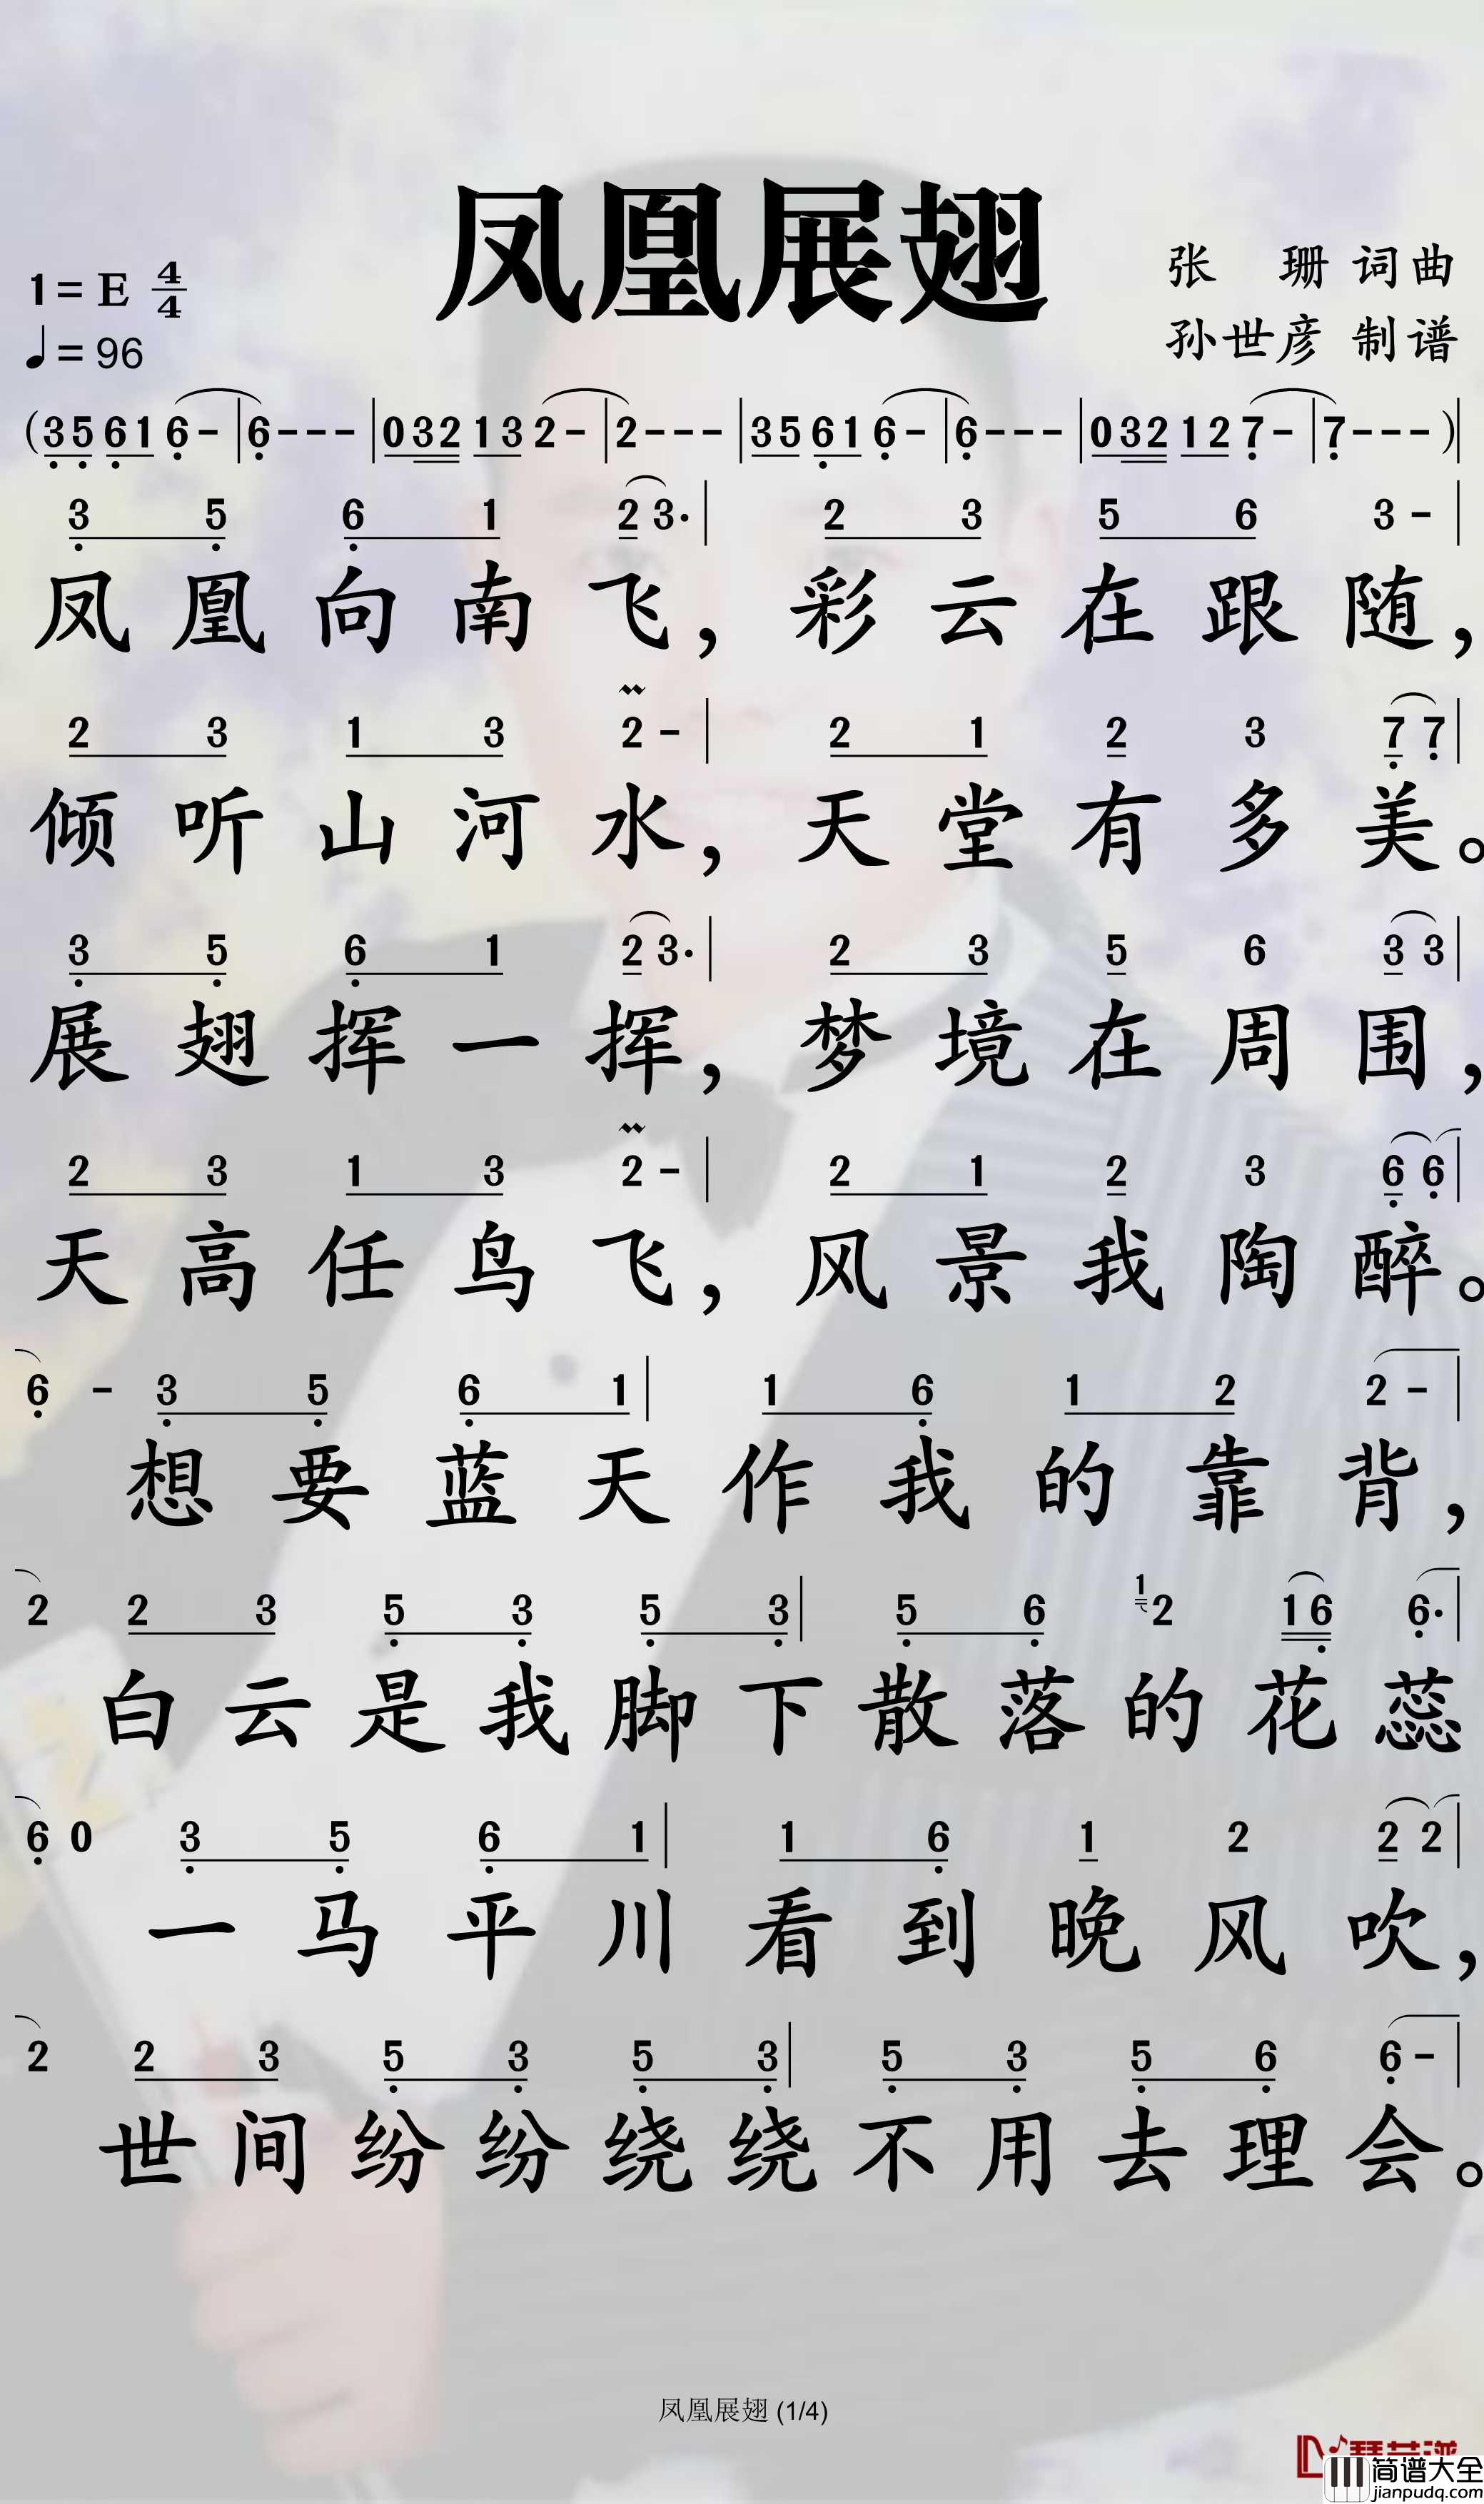 凤凰展翅
1= E 4/4
♩= 96
张 珊 词曲
孙世彦 制谱
(3̣5̣ 6̣1 6̣- | 6̣--- | 032 13 2- | 2--- | 35 6̣1 6̣- | 6̣--- | 032 12 7̣- | 7̣---) |
3̣ 5̣ 6̣ 1 2 3· | 2 3 5 6 3 - |
凤凰向南飞，彩云在跟随，
2 3 1 3 2 - | 2 1 2 3 7̣ 7̣ |
倾听山河水，天堂有多美。
3̣ 5̣ 6̣ 1 2 3· | 2 3 5 6 3 3 |
展翅挥一挥，梦境在周围，
2 3 1 3 2 - | 2 1 2 3 6̣ 6̣ |
天高任鸟飞，风景我陶醉。
6̣ - 3̣ 5̣ 6̣ 1 | 1 6̣ 1 2 2 - |
想要蓝天作我的靠背，
2 2 3 5̣ 3̣ 5̣ 3̣ | 5̣ 6̣ 1 2 1 6̣ 6̣· |
白云是我脚下散落的花蕊
6̣ 0 3̣ 5̣ 6̣ 1 | 1 6̣ 1 2 2 2 |
一马平川看到晚风吹，
2 2 3 5̣ 3̣ 5̣ 3̣ | 5̣ 3̣ 5̣ 6̣ 6̣ - |
世间纷纷绕绕不用去理会。
凤凰展翅 (1/4)
简谱大全
jianpudq.com